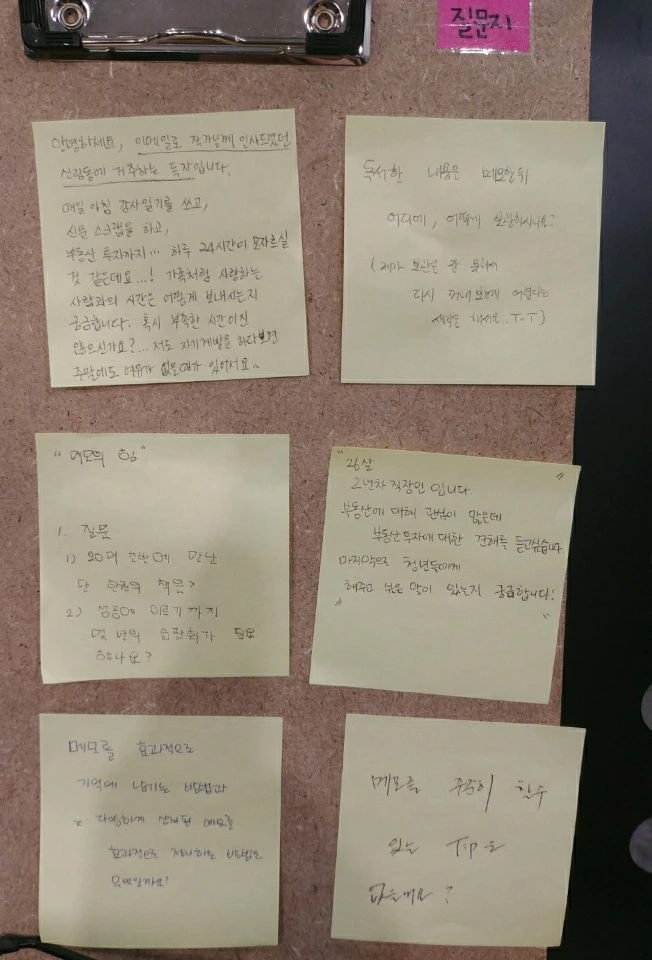 질문지
안녕하세요, 이메일로 작가님께 인사드렸던
신림동에 거주하는 독자입니다.
매일 아침 감사일기를 쓰고,
신문 스크랩을 하고,
부동산 투자까지... 하루 24시간이 모자르실
것 같은데요...! 가족처럼 사랑하는
사람과의 시간은 어떻게 보내시는지
궁금합니다. 혹시 부족한 시간이진
않으신가요?... 저도 자기계발을 하다보면
주말에도 여유가 없을때가 있어서요..
독서한 내용은 메모한뒤
어디에, 어떻게 보관하시나요?
(제가 보관을 잘 못해서
다시 꺼내보는게 어렵다는
생각을 해서요..T-T)
"메모의 힘"
1. 질문
1) 20대 초반에 만난
단 한권의 책은?
2) 성공에 이르기 까지
몇 년의 습관화가 필요
하나요?
"26살
2년차 직장인 입니다.
부동산에 대해 관심이 많은데
부동산투자에 대한 견해를 듣고싶습니다
마지막으로 청년들에게
해주고 싶은 말이 있는지 궁금합니다!
"
메모를 효과적으로
기억에 남기는 방법과
다양하게 산재된 메모를
효과적으로 정리하는 방법은
무엇일까요?
메모를 꾸준히 할수
있는 Tip은
없을까요?